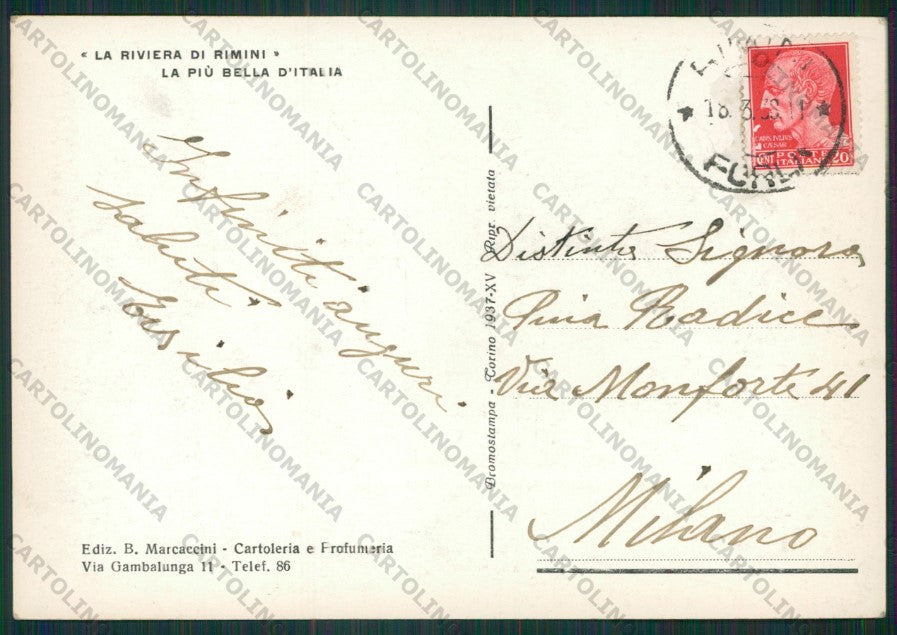 « LA RIVIERA DI RIMINI »
LA PIÙ BELLA D'ITALIA
Infiniti auguri
saluti
Ersilia
Ediz. B. Marcaccini - Cartoleria e Profumeria
Via Gambalunga 11 - Telef. 86
Bromostampa - Torino 1937-XV Ripr. vietata
FORLI
CAIVS IVLIVS
CAESAR
POSTE
CENT ITALIANE 20
Distinta Signora
Pina Radice
Via Monforte 41
Milano
CARTOLINOMANIA